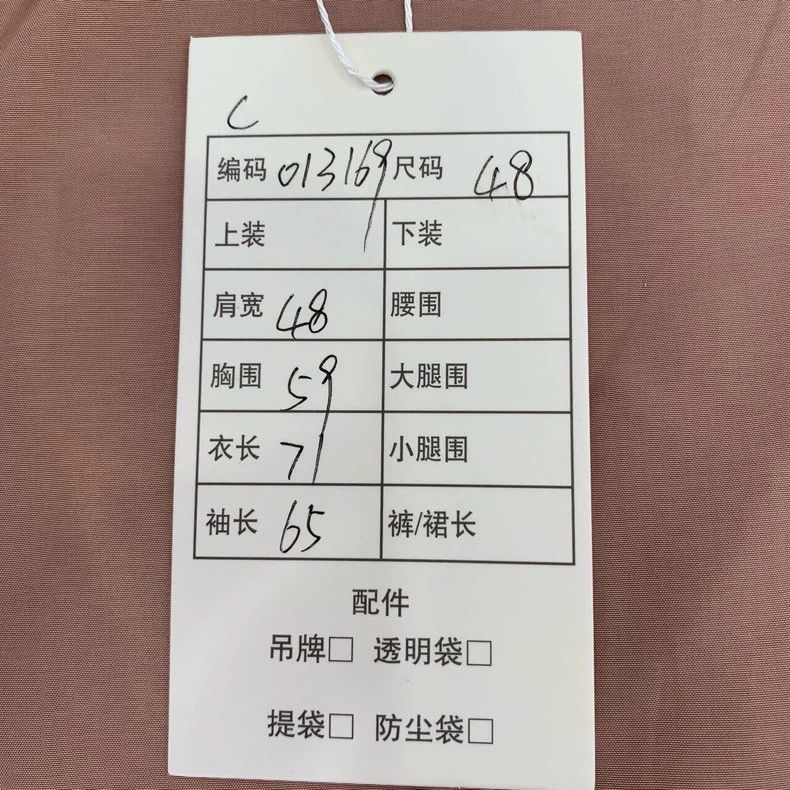 C
编码 013169 尺码 48
上装 下装
肩宽 48 腰围
胸围 59 大腿围
衣长 71 小腿围
袖长 65 裤/裙长
配件
吊牌□ 透明袋□
提袋□ 防尘袋□